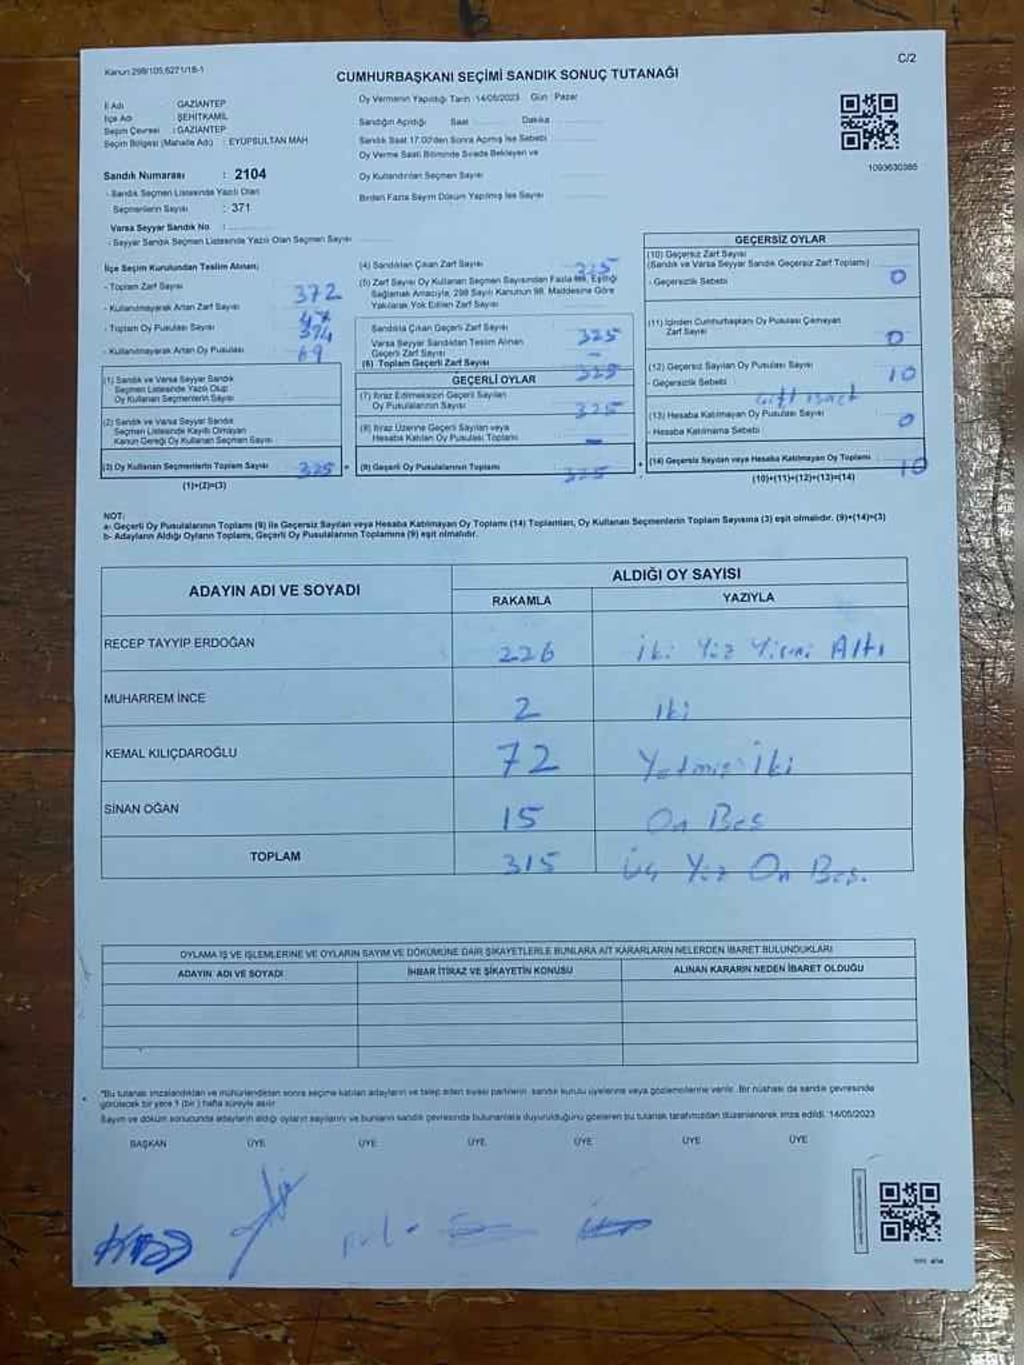 Kanun:298/105,6271/18-1
C/2
CUMHURBAŞKANI SEÇİMİ SANDIK SONUÇ TUTANAĞI
İl Adı : GAZİANTEP
İlçe Adı : ŞEHİTKAMİL
Seçim Çevresi : GAZİANTEP
Seçim Bölgesi (Mahalle Adı) : EYÜPSULTAN MAH
Sandık Numarası : 2104
- Sandık Seçmen Listesinde Yazılı Olan
Seçmenlerin Sayısı : 371
Varsa Seyyar Sandık No :
- Seyyar Sandık Seçmen Listesinde Yazılı Olan Seçmen Sayısı
Oy Vermenin Yapıldığı Tarih : 14/05/2023 Gün : Pazar
Sandığın Açıldığı Saat Dakika
Sandık Saat 17.00'den Sonra Açılmış İse Sebebi
Oy Verme Saati Bitiminde Sırada Bekleyen ve
Oy Kullandırılan Seçmen Sayısı
Birden Fazla Sayım Döküm Yapılmış İse Sayısı
1093630385
İlçe Seçim Kurulundan Teslim Alınan;
- Toplam Zarf Sayısı 372
- Kullanılmayarak Artan Zarf Sayısı
- Toplam Oy Pusulası Sayısı 374
- Kullanılmayarak Artan Oy Pusulası
(1) Sandık ve Varsa Seyyar Sandık
Seçmen Listesinde Yazılı Olup
Oy Kullanan Seçmenlerin Sayısı
(2) Sandık ve Varsa Seyyar Sandık
Seçmen Listesinde Kayıtlı Olmayan
Kanun Gereği Oy Kullanan Seçmen Sayısı
(3) Oy Kullanan Seçmenlerin Toplam Sayısı 325
(1)+(2)=(3)
(4) Sandıktan Çıkan Zarf Sayısı
(5) Zarf Sayısı Oy Kullanan Seçmen Sayısından Fazla İse, Eşitliği
Sağlamak Amacıyla, 298 Sayılı Kanunun 98. Maddesine Göre
Yakılarak Yok Edilen Zarf Sayısı
Sandıkta Çıkan Geçerli Zarf Sayısı 325
Varsa Seyyar Sandıktan Teslim Alınan
Geçerli Zarf Sayısı -
(6) Toplam Geçerli Zarf Sayısı 325
GEÇERLİ OYLAR
(7) İtiraz Edilmeksizin Geçerli Sayılan
Oy Pusulalarının Sayısı 325
(8) İtiraz Üzerine Geçerli Sayılan veya
Hesaba Katılan Oy Pusulası Toplamı -
(9) Geçerli Oy Pusulalarının Toplamı 325
GEÇERSİZ OYLAR
(10) Geçersiz Zarf Sayısı
(Sandık ve Varsa Seyyar Sandık Geçersiz Zarf Toplamı)
- Geçersizlik Sebebi 0
(11) İçinden Cumhurbaşkanı Oy Pusulası Çıkmayan
Zarf Sayısı 0
(12) Geçersiz Sayılan Oy Pusulası Sayısı 10
- Geçersizlik Sebebi
(13) Hesaba Katılmayan Oy Pusulası Sayısı 0
- Hesaba Katılmama Sebebi
(14) Geçersiz Sayılan veya Hesaba Katılmayan Oy Toplamı 10
(10)+(11)+(12)+(13)=(14)
NOT:
a- Geçerli Oy Pusulalarının Toplamı (9) ile Geçersiz Sayılan veya Hesaba Katılmayan Oy Toplamı (14) Toplamları, Oy Kullanan Seçmenlerin Toplam Sayısına (3) eşit olmalıdır. (9)+(14)=(3)
b- Adayların Aldığı Oyların Toplamı, Geçerli Oy Pusulalarının Toplamına (9) eşit olmalıdır.
ADAYIN ADI VE SOYADI
ALDIĞI OY SAYISI
RAKAMLA YAZIYLA
RECEP TAYYİP ERDOĞAN 226 İki Yüz Yirmi Altı
MUHARREM İNCE 2 İki
KEMAL KILIÇDAROĞLU 72 Yetmiş İki
SİNAN OĞAN 15 On Beş
TOPLAM 315 Üç Yüz On Beş.
OYLAMA İŞ VE İŞLEMLERİNE VE OYLARIN SAYIM VE DÖKÜMÜNE DAİR ŞİKAYETLERLE BUNLARA AİT KARARLARIN NELERDEN İBARET BULUNDUKLARI
ADAYIN ADI VE SOYADI İHBAR İTİRAZ VE ŞİKAYETİN KONUSU ALINAN KARARIN NEDEN İBARET OLDUĞU
*Bu tutanak imzalandıktan ve mühürlendikten sonra seçime katılan adayların ve talep eden siyasi partilerin sandık kurulu üyelerine veya gözlemcilerine verilir. Bir nüshası da sandık çevresinde
görülecek bir yere 1 (bir) hafta süreyle asılır.
Sayım ve döküm sonucunda adayların aldığı oyların sayılarını ve bunların sandık çevresinde bulunanlara duyurulduğunu gösteren bu tutanak tarafımızdan düzenlenerek imza edildi. 14/05/2023
BAŞKAN ÜYE ÜYE ÜYE ÜYE ÜYE ÜYE